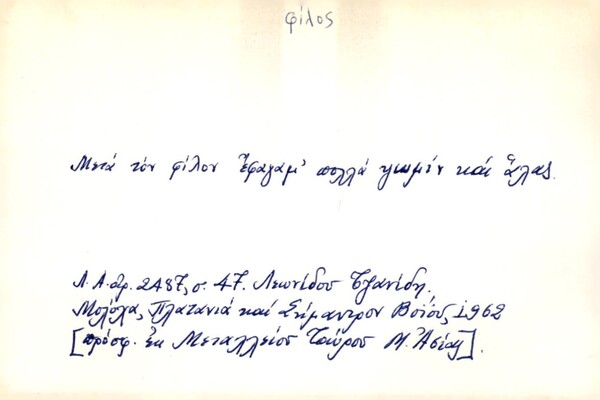 φίλος
Μετά τόν φίλον ἔφαγαμ' πολλά ψωμίν καί ἅλας.
Λ.Α. ἀρ. 2487, σ. 47. Λεωνίδου Τζανίδη,
Μολόχα, Πλατανιά καί Σήμαντρον Βοΐου, 1962
[πρόσφ. ἐκ Μεταλλείου Ταύρου Μ. Ἀσίας].